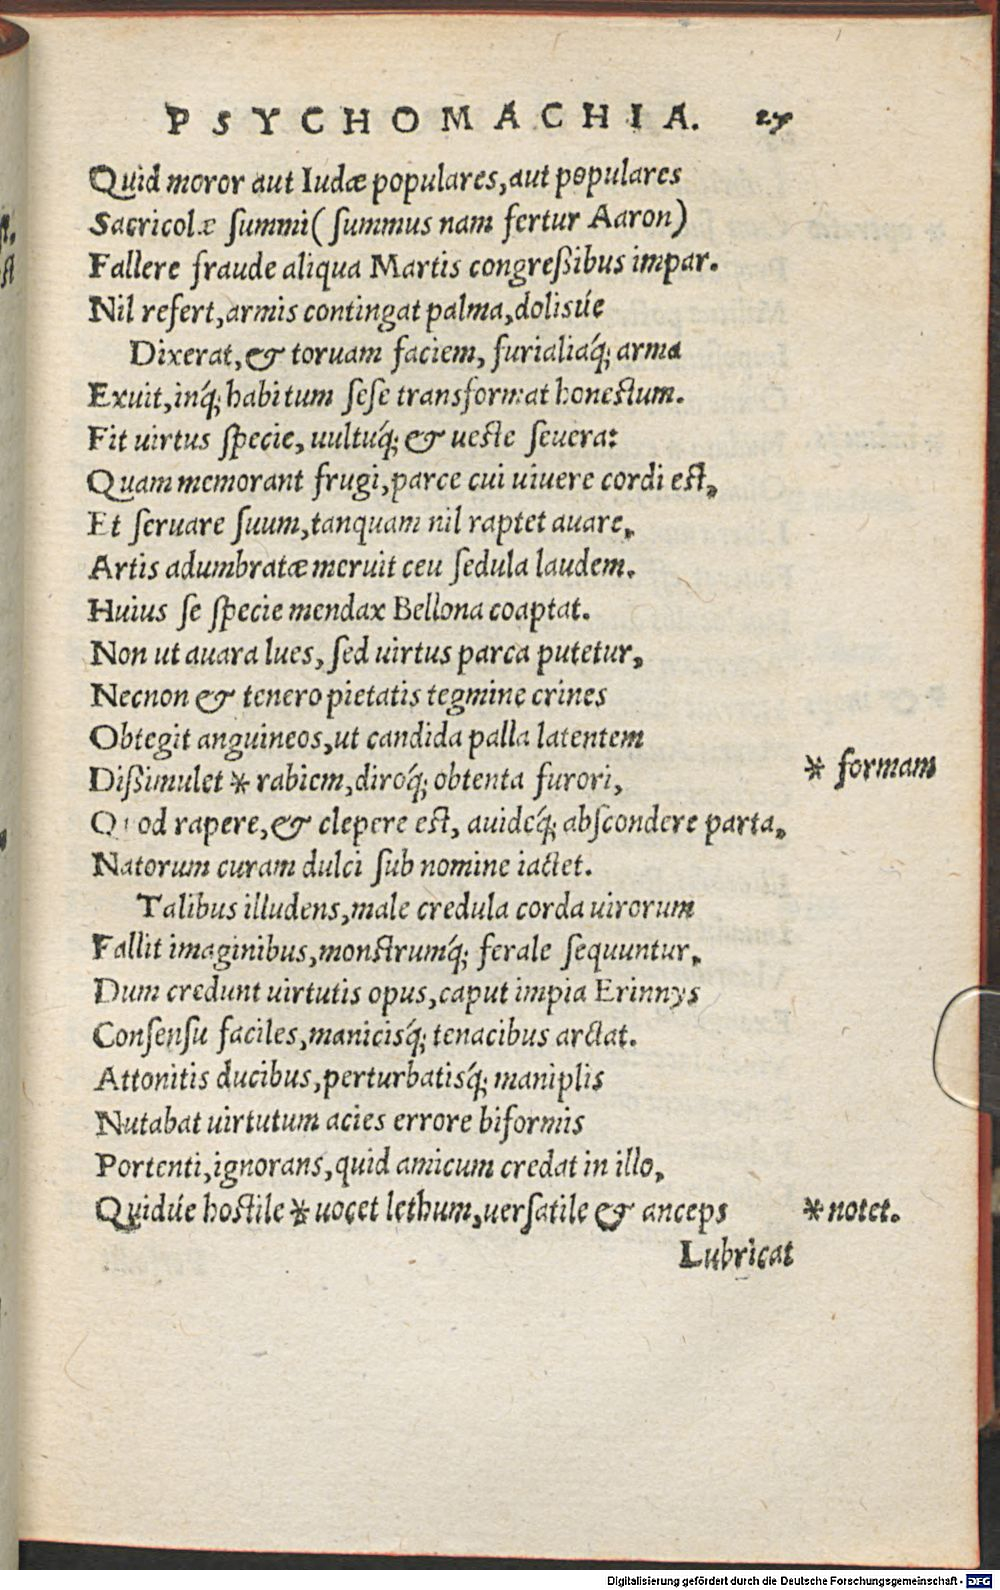 PSYCHOMACHIA. 27
Quid moror aut Iudæ populares, aut populares
Sacricolæ ſummi (ſummus nam fertur Aaron)
Fallere fraude aliqua Martis congreßibus impar.
Nil refert, armis contingat palma, dolisúe
Dixerat, & toruam faciem, furialiáq; arma
Exuit, inq́; habitum ſeſe transformat honestum.
Fit uirtus ſpecie, uultuq́; & ueste ſeuera:
Quam memorant frugi, parce cui uiuere cordi est,
Et ſeruare ſuum, tanquam nil raptet auare,
Artis adumbratæ meruit ceu ſedula laudem.
Huius ſe ſpecie mendax Bellona coaptat.
Non ut auara lues, ſed uirtus parca putetur,
Necnon & tenero pietatis tegmine crines
Obtegit anguineos, ut candida palla latentem
Dißimulet * rabiem, diroq́; obtenta furori, * formam
Quod rapere, & clepere est, auideq́; abſcondere parta,
Natorum curam dulci ſub nomine iactet.
Talibus illudens, male credula corda uirorum
Fallit imaginibus, monstrumq́; ferale ſequuntur,
Dum credunt uirtutis opus, caput impia Erinnys
Conſenſu faciles, manicisq́; tenacibus arctat.
Attonitis ducibus, perturbatisq́; maniplis
Nutabat uirtutum acies errore biformis
Portenti, ignorans, quid amicum credat in illo,
Quidúe hostile * uocet lethum, uerſatile & anceps * notet.
Lubricat
ſt
Digitalisierung gefördert durch die Deutsche Forschungsgemeinschaft - DFG